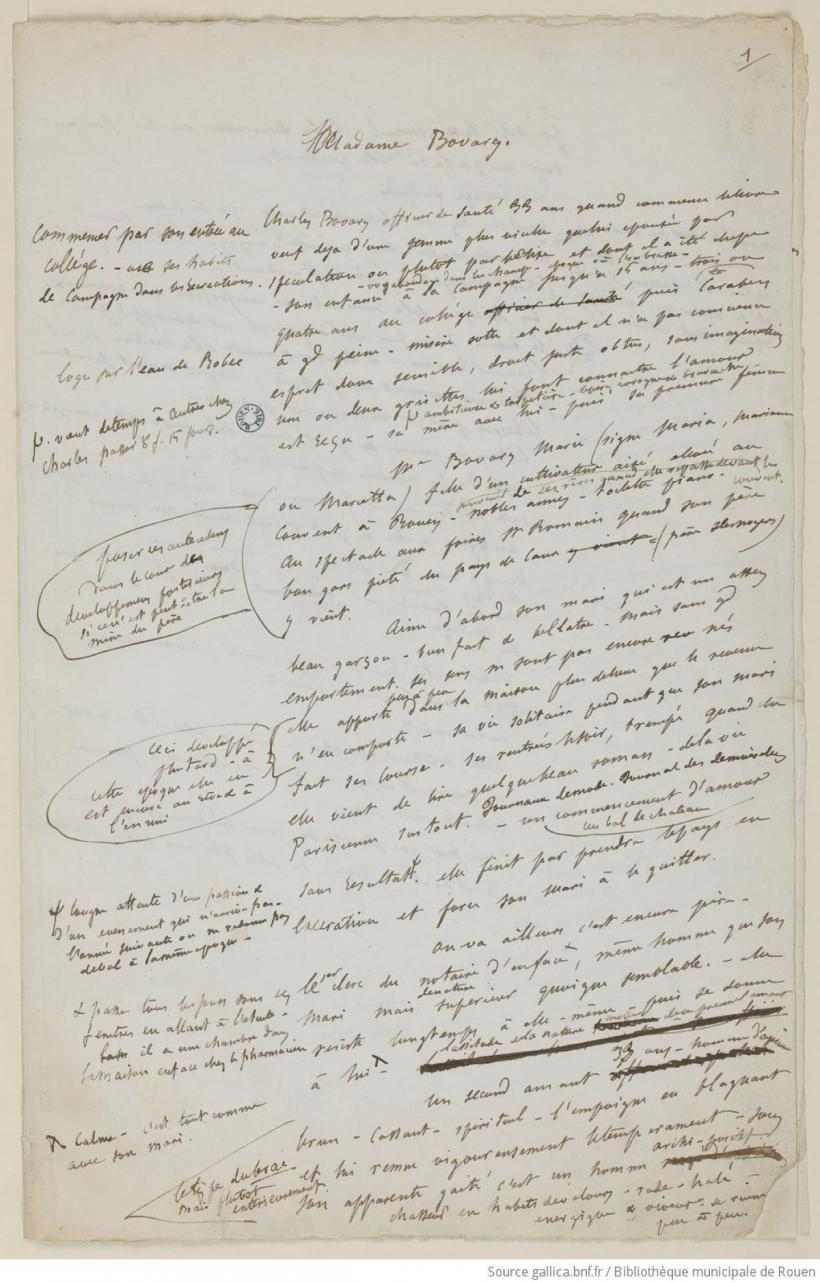 1
Madame Bovary.
Charles Bovary officier de santé 33 ans quand commence le livre
veuf deja d'une femme plus vieille que lui epousée par
speculation ou plutot par betise et dont il a été dupe
- son enfance à la campagne jusqu'à 15 ans - trois ou
- vagabondage dans les champs -
quatre ans au collège officier de santé puis Carabin
à gd peine - misère sotte et dont il n'a pas conscience
esprit doux sensible, droit juste obtus, sans imagination
une ou deux grisettes lui font connaitre l'amour
est reçu - sa mère avec lui - puis sa première femme
Commencer par son entrée au
collège. - ses habits
de Campagne dans les récréations.
loge sur l'eau de Robec
p. vient de temps à autres chez
Charles passer 8 j. 15 jours.
Me Bovary Marie (signe Maria, Marianne
ou Marietta) fille d'un cultivateur aisé elevée au
couvent à Rouen - nobles amies - toilette piano -
souvenir de ses rêves quand elle repasse devant le couvent.
Au spectacle aux foires St Romain quand son père
bon gars du pays de Caux y vient (père
y vient.
poser ces antecedens
dans le cour des
developpemens posterieurs
si ce n'est peut-être la
mère du père
Aime d'abord son mari qui est un assez
beau garçon - bien fait & bellatre - mais sans gd
emportement. ses sens ne sont pas encore nés
peu à peu
elle apporte dans la maison plus de luxe que le revenu
n'en comporte - sa vie solitaire pendant que son mari
fait ses courses - ses rentrées le soir, trempé quand
elle vient de lire quelque beau roman - de la vie
Parisienne surtout. Journaux de mode. Journal des demoiselles
- un commencement d'amour
un bal de chateau
sans resultat. elle finit par prendre le pays en
execration et force son mari à le quitter.
ceci developpé
plus tard - à
cette epoque elle en
est encore au à
l'ennui
longue attente d'une passion &
d'un evenement qui n'arrive pas -
l'année suivante on ne redonne pas
de bal à la même epoque -
on va ailleurs c'est encore pire -
le 1er clerc du notaire d'en face, même homme que son
mari mais superieur quoique semblable. - elle
de nature
resiste longtemps à elle-même puis se donne
à lui -
passe tous les jours sous ses
fenetres en allant à l'etude -
il a une chambre dans
la maison en face chez le pharmacien
Calme - c'est tout comme
avec son mari.
un second amant 33 ans - homme d'
brun - Cassant - spirituel - l'empoigne en blaguant
et lui remue vigoureusement le temperament - sous
son apparente gaité c'est un homme archi-positif
chasseur en habits de velours - rude - halé -
energique & viveur - se ruine
peu à peu.
le type
mais plutot
interieurement
Source gallica.bnf.fr / Bibliothèque municipale de Rouen